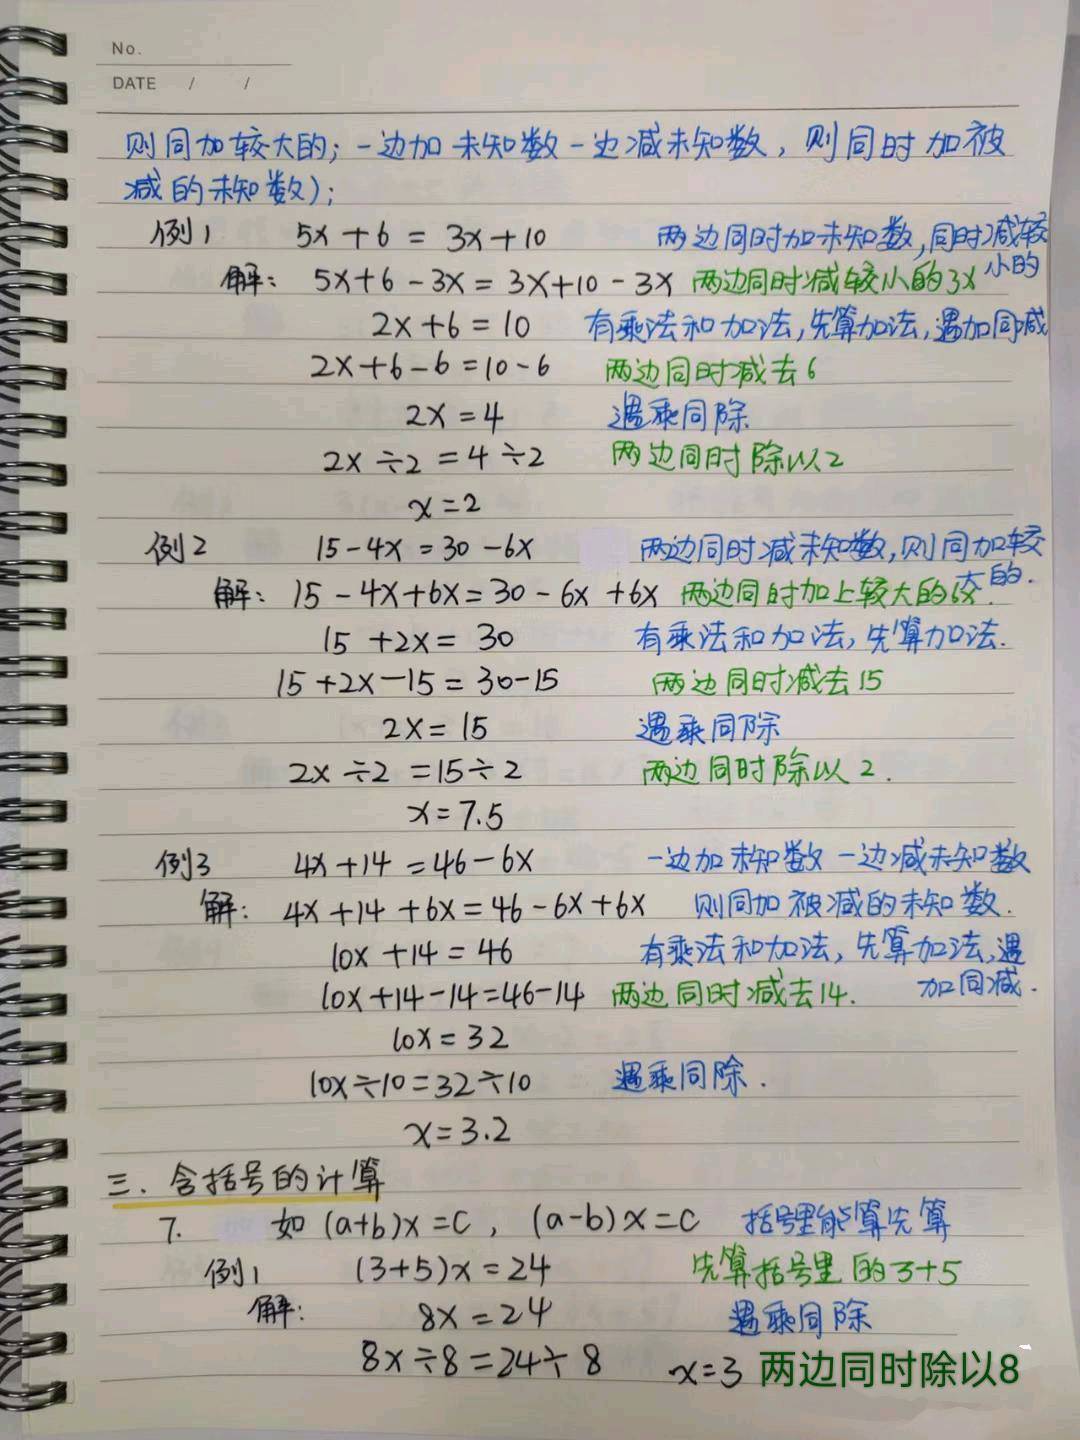 No.
DATE / /
则同加较大的；一边加未知数一边减未知数，则同时加被
减的未知数)；
例1 5x+6=3x+10 两边同时加未知数,同时减较
小的
解：5x+6-3x=3x+10-3x 两边同时减较小的3x
2x+6=10 有乘法和加法,先算加法,遇加同减
2x+6-6=10-6 两边同时减去6
2x=4 遇乘同除
2x÷2=4÷2 两边同时除以2
x=2
例2 15-4x=30-6x 两边同时减未知数,则同加较
大的.
解：15-4x+6x=30-6x+6x 两边同时加上较大的6x.
15+2x=30 有乘法和加法,先算加法.
15+2x-15=30-15 两边同时减去15
2x=15 遇乘同除
2x÷2=15÷2 两边同时除以2.
x=7.5
例3 4x+14=46-6x 一边加未知数一边减未知数
解：4x+14+6x=46-6x+6x 则同加被减的未知数.
10x+14=46 有乘法和加法,先算加法,遇
加同减.
10x+14-14=46-14 两边同时减去14.
10x=32
10x÷10=32÷10 遇乘同除.
x=3.2
三.含括号的计算
7. 如(a+b)x=c，(a-b)x=c 括号里能算先算
例1 (3+5)x=24 先算括号里的3+5
解: 8x=24 遇乘同除
8x÷8=24÷8 x=3 两边同时除以8